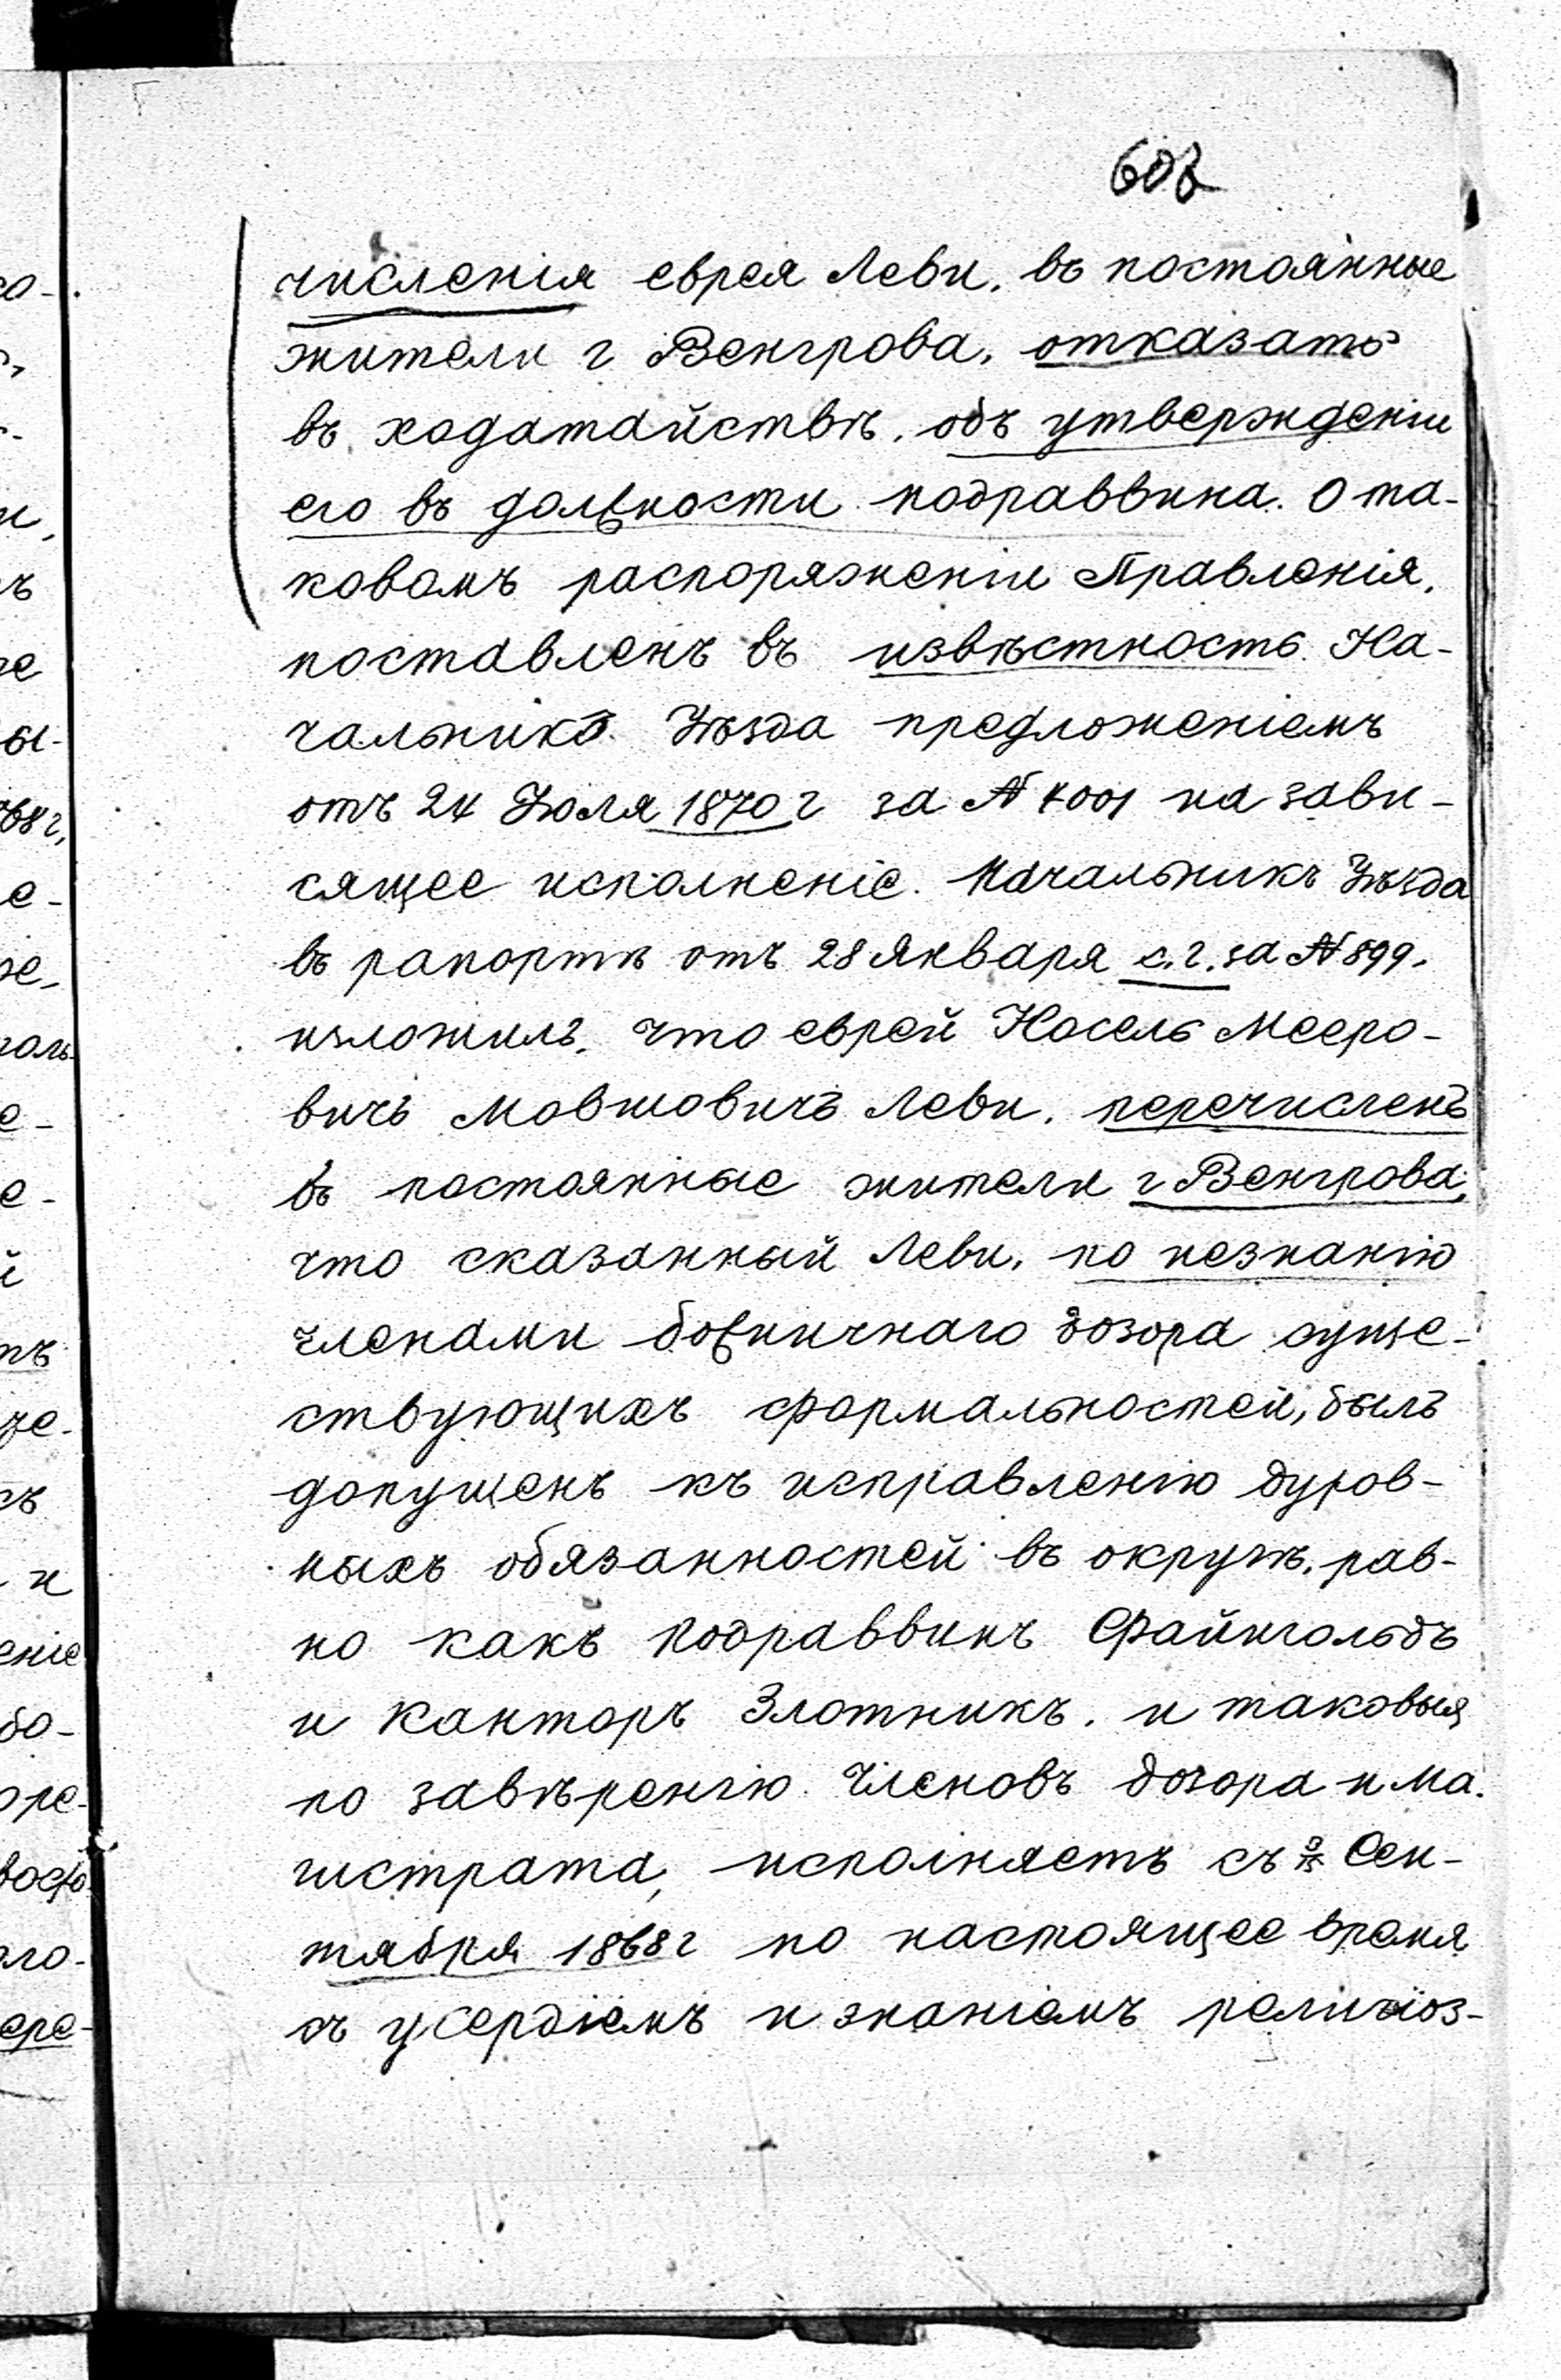 602
численія еврея Леви, въ постоянные
жители г Венгрова, отказать
въ ходатайствѣ, объ утвержденіи
его въ должности подраввина. О та-
ковомъ распоряженіи Правленія,
поставленъ въ извѣстность На-
чальникъ Уѣзда предложеніемъ
отъ 24 Іюля 1870 г за № 4001 на зави-
сящее исполненіе. Начальникъ Уѣзда
въ рапортѣ отъ 28 Января с. г. за № 899,
изложилъ, что еврей Носель Мееро-
вичъ Мовшовичъ Леви, перечисленъ
въ постоянные жители г Венгрова,
что сказанный Леви, по незнанію
членами божничнаго дозора суще-
ствующихъ формальностей, былъ
допущенъ къ исправленію духов-
ныхъ обязанностей въ округѣ, рав-
но какъ подраввинъ Файнгольдъ
и канторъ Злотникъ, и таковыя
по завѣренію членовъ дозора и ма-
гистрата, исполняетъ съ Сен-
тября 1868 г по настоящее время
съ усердіемъ и знаніемъ религіоз-